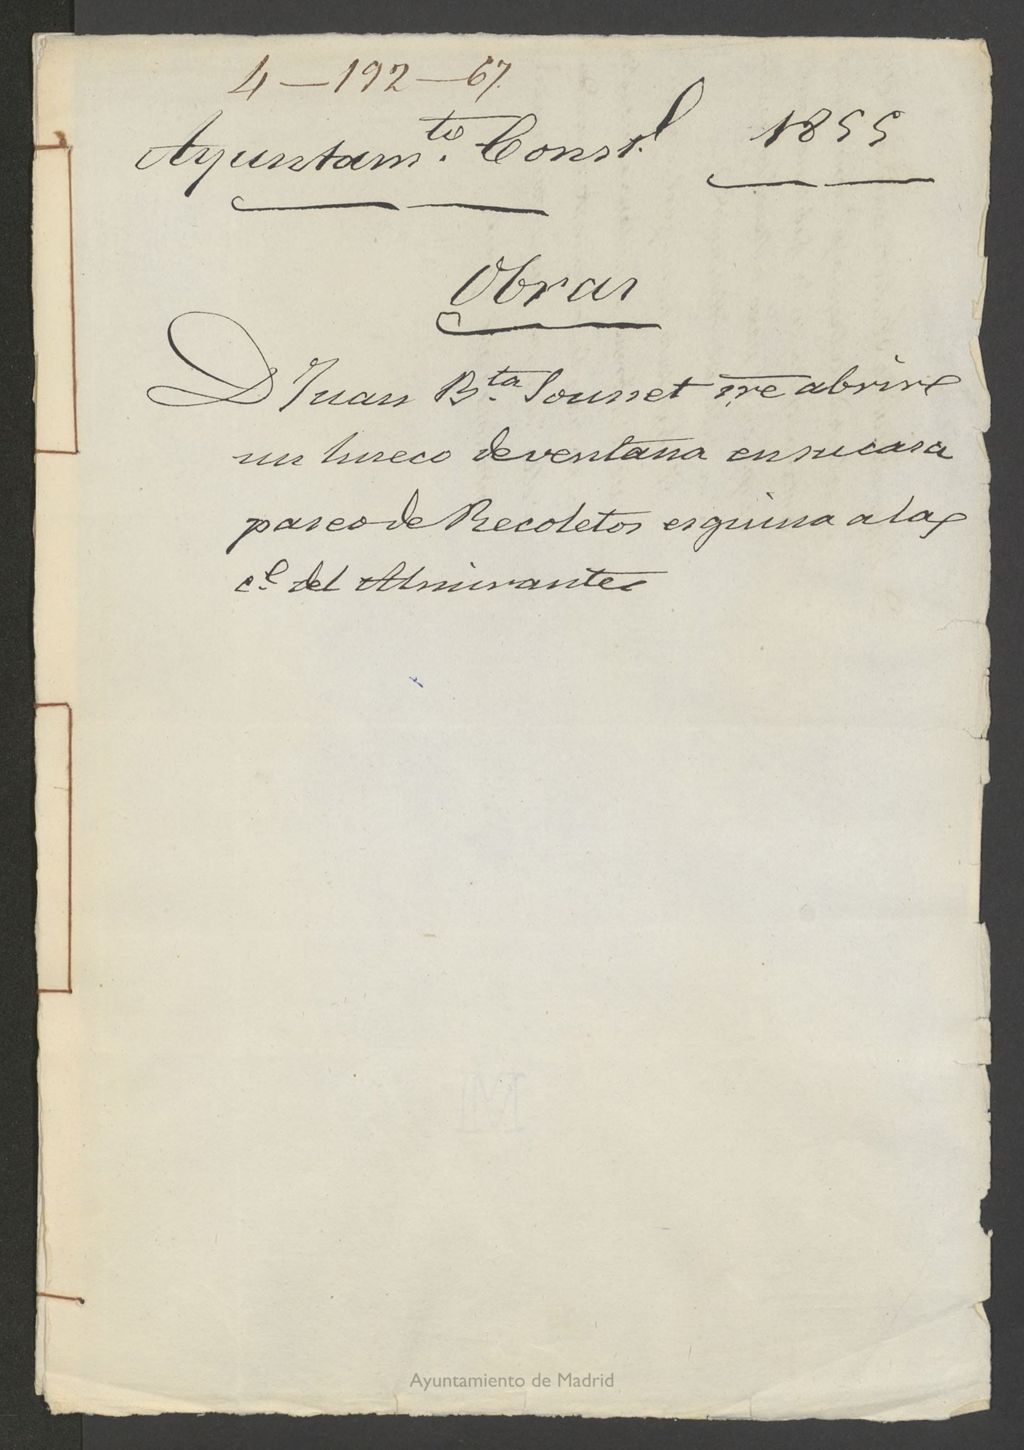 4-192-67.
Ayuntam.to Const.l 1855
Obras
D Juan B.ta Sounet sre abrir
un hueco de ventana en su casa
paseo de Recoletos esquina a la
c.e del Almirante
Ayuntamiento de Madrid